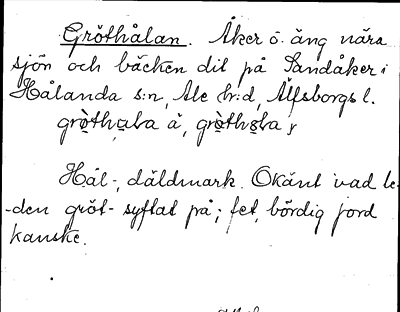 Gröthålan. Åker o. äng nära
sjön och bäcken dit på Sandåker i
Hålanda s:n, Ale h:d, Älfsborgs l.
gròthala å, gròthola
Hål-, däldmark. Okänt vad le-
-den gröt- syftat på; fet, bördig jord
kanske.